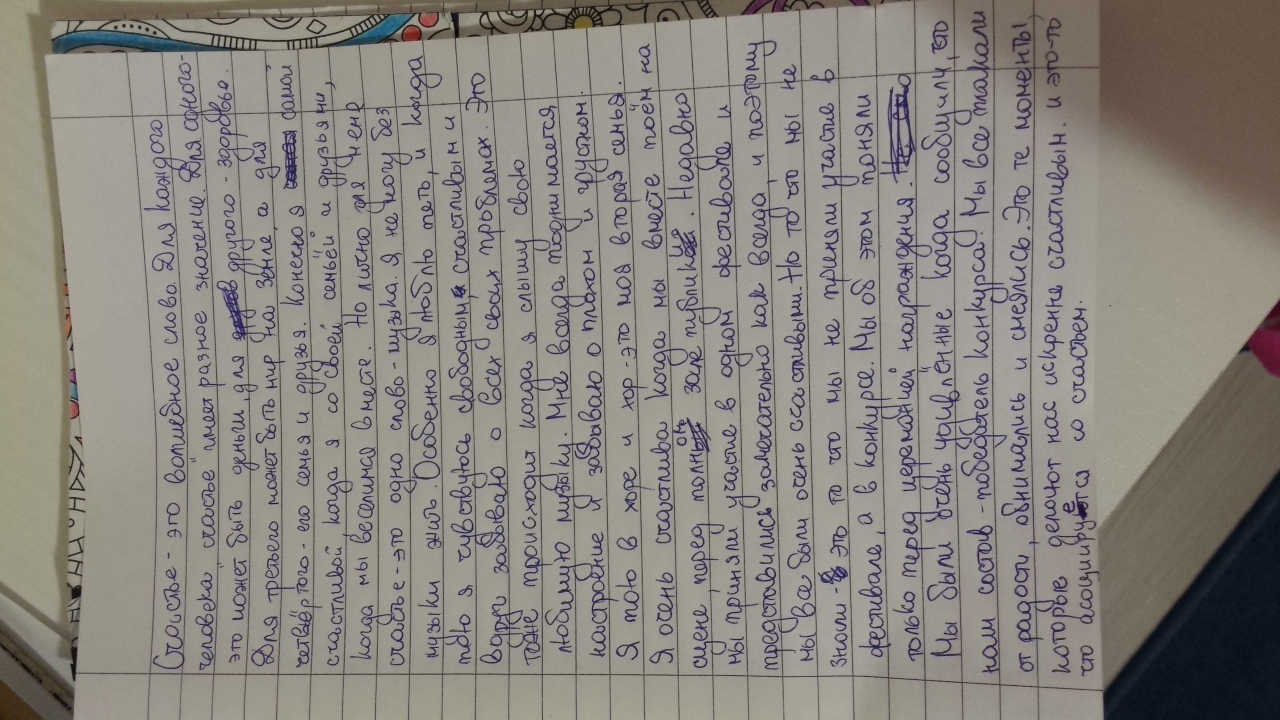 Счастье - это волшебное слово. Для каждого
человека "счастье" имеет разное значение. Для одного -
это может быть деньги, для другого - здоровье.
Для третьего может быть мир на земле, а для
четвёртого - его семья и друзья. Конечно я самой
счастливой когда я со своей семьёй и друзьями,
когда мы веселимся вместе. Но лично для меня
счастье - это одно слово - музыка. Я не могу без
музыки жить. Особенно я люблю петь, и когда
пою я чувствуюсь свободным, счастливым и
вдруг забываю о всех своих проблемах. Это
тоже происходит когда я слышу свою
любимую музыку. Мне всегда поднимается
настроение и забываю о плохом и грустном.
Я пою в хоре и хор - это моя вторая семья.
Я очень счастлива когда мы вместе поём на
сцене, перед полным зале публики. Недавно
мы приняли участие в одном фестивале и
представились замечательно как всегда, и поэтому
мы все были очень счастливыми. Но то что мы не
знали - это то что мы не приняли участие в
фестивале, а в конкурсе. Мы об этом поняли
только перед церемонией награждения.
Мы были очень удивлённые когда сообщили, что
наш состав - победитель конкурса! Мы все плакали
от радости, обнимались и смеялись. Это те моменты,
которые делают нас искренне счастливым. и это-то,
что ассоциируется со счастьем.